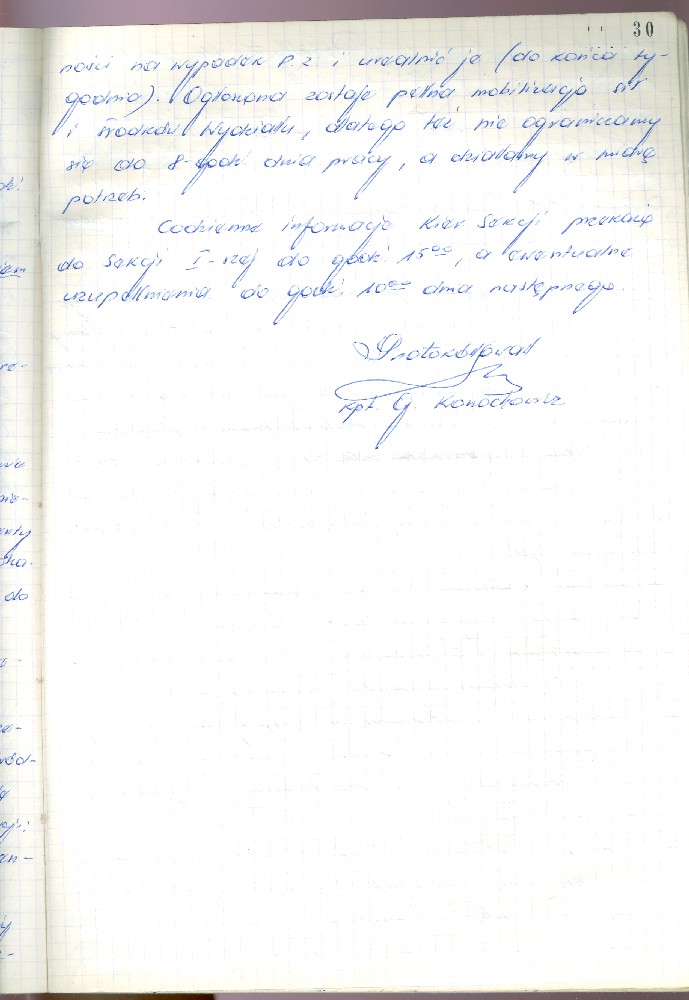 30
ności na wypadek P.Z. i urealnić je (do końca ty-
godnia). Ogłoszona zostaje pełna mobilizacja sił
i środków Wydziału, dlatego też nie ograniczamy
się do 8-godz. dnia pracy, a działamy w miarę
potrzeb.
Codzienne informacje Kier. Sekcji przekażą
do Sekcji I-szej do godz. 15⁰⁰, a ewentualne
uzupełnienia do godz. 10⁰⁰ dnia następnego.
Protokółował
kpt. G.
do